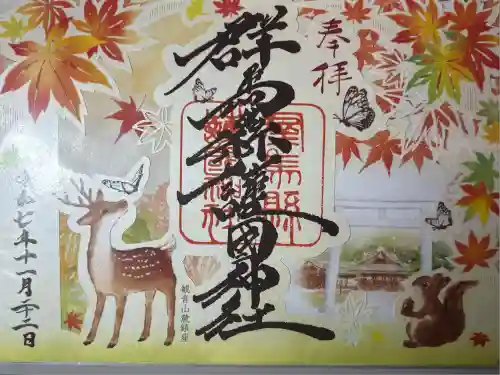 奉拝
群馬縣護國神社
群馬縣護國神社
観音山鎮座
令和七年十一月二十二日